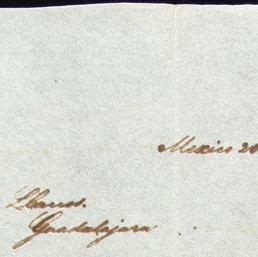 Mexico 20
Llanos.
Guadalajara